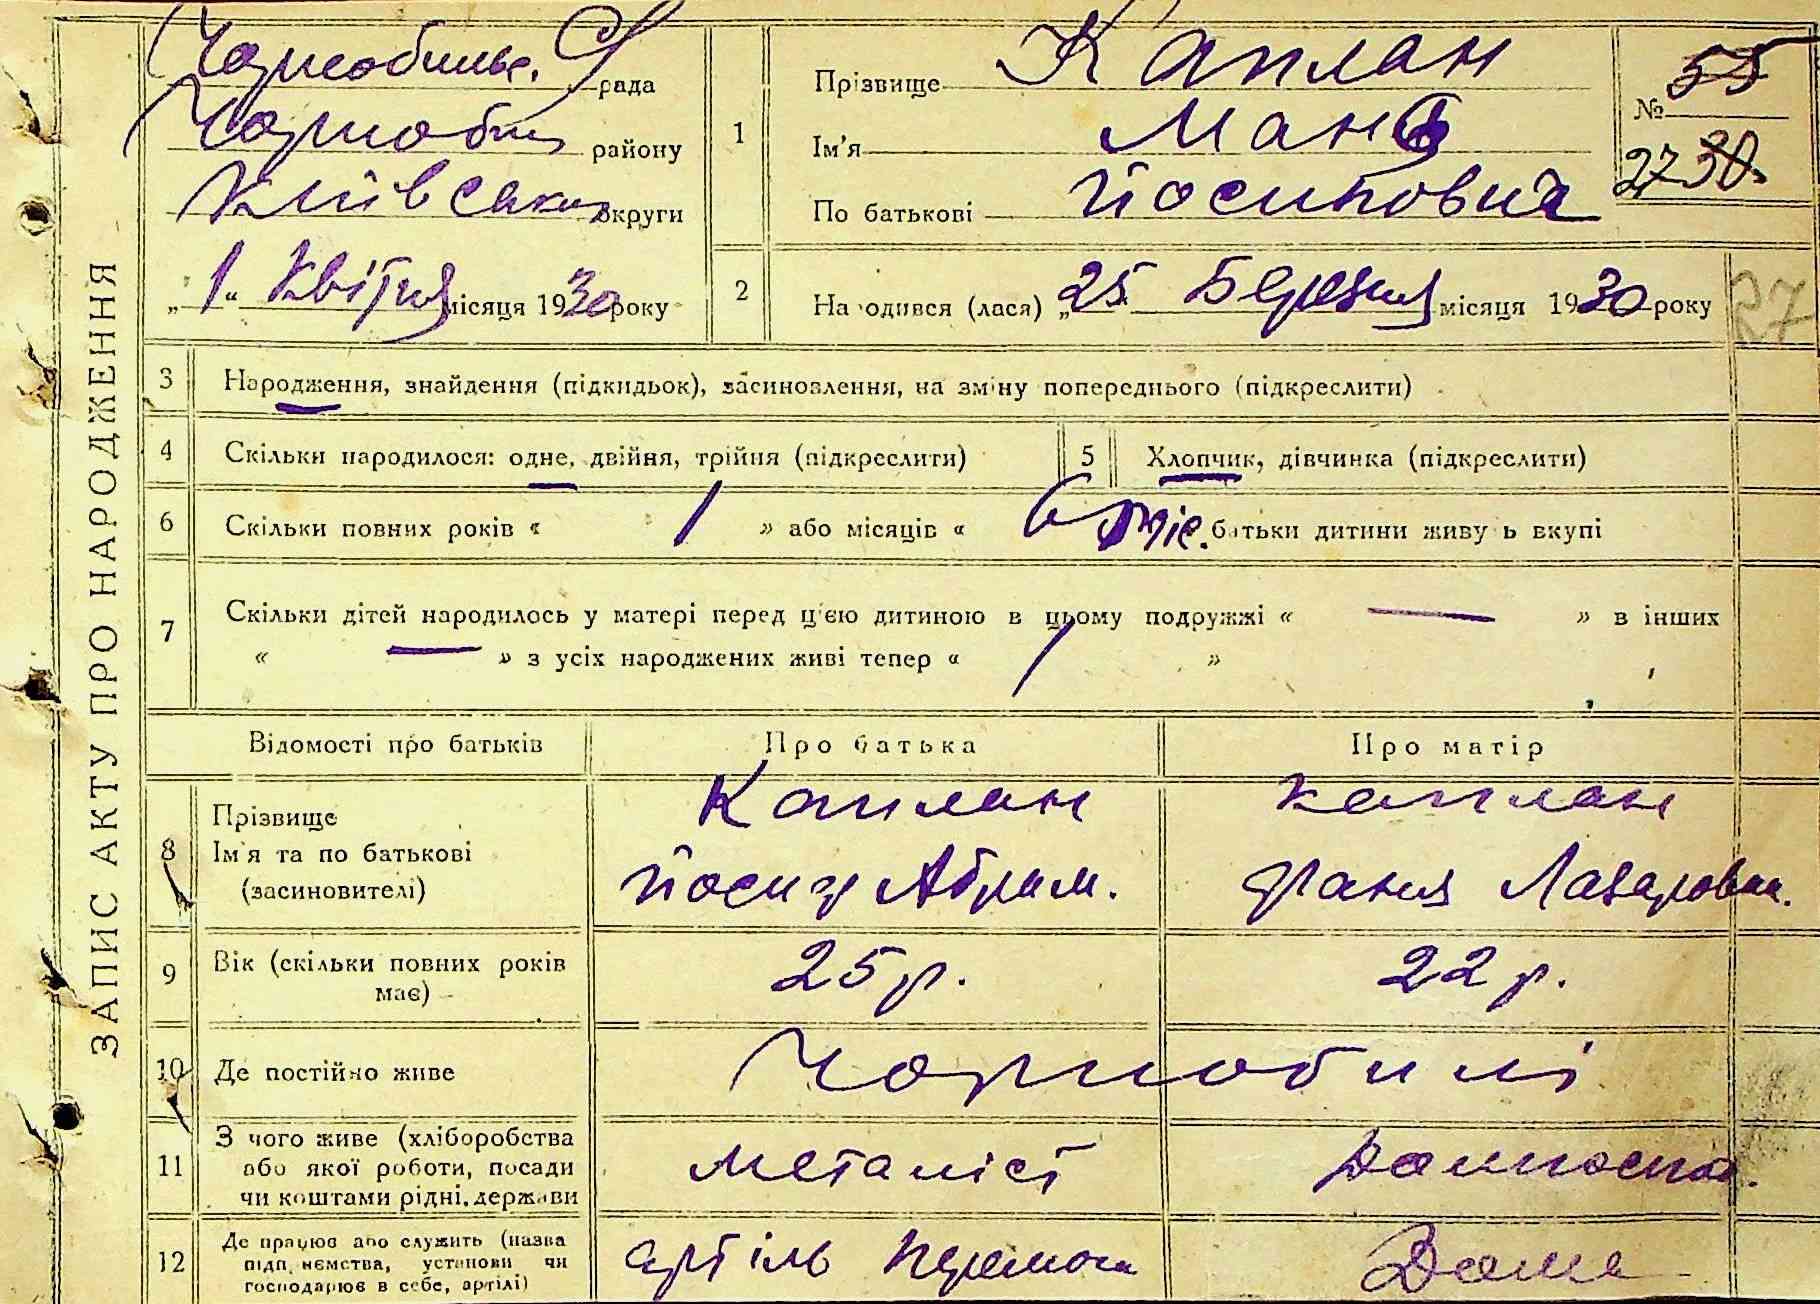 ЗАПИС АКТУ ПРО НАРОДЖЕННЯ
Чорнобильс. рада
Чорноб району
Київської округи
„1“ Квітня місяця 1930 року
1
Прізвище Каплан
Ім'я Мань
По батькові Йосипович
№ 55
27 30
2 Народився (лася) „25 Березня місяця 1930 року
27
3 Народження, знайдення (підкидьок), засиновлення, на зміну попереднього (підкреслити)
4 Скільки народилося: одне, двійня, трійня (підкреслити)
5 Хлопчик, дівчинка (підкреслити)
6 Скільки повних років « 1 » або місяців « 6 міс. батьки дитини живуть вкупі
7 Скільки дітей народилось у матері перед ц'єю дитиною в цьому подружжі « — » в інших
« — » з усіх народжених живі тепер « 1 »
Відомості про батьків Про батька Про матір
8 Прізвище Каплан Каплан
Ім'я та по батькові Йосип Абрам. Фаня Лазаровна.
(засиновителі)
9 Вік (скільки повних років має) 25 р. 22 р.
10 Де постійно живе Чорнобилі
11 З чого живе (хліборобства
або якої роботи, посади
чи коштами рідні, держави
Металіст Домгоспод.
12 Де працює або служить (назва
підприємства, установи чи
господарює в себе, артілі)
артіль Перемога Дома